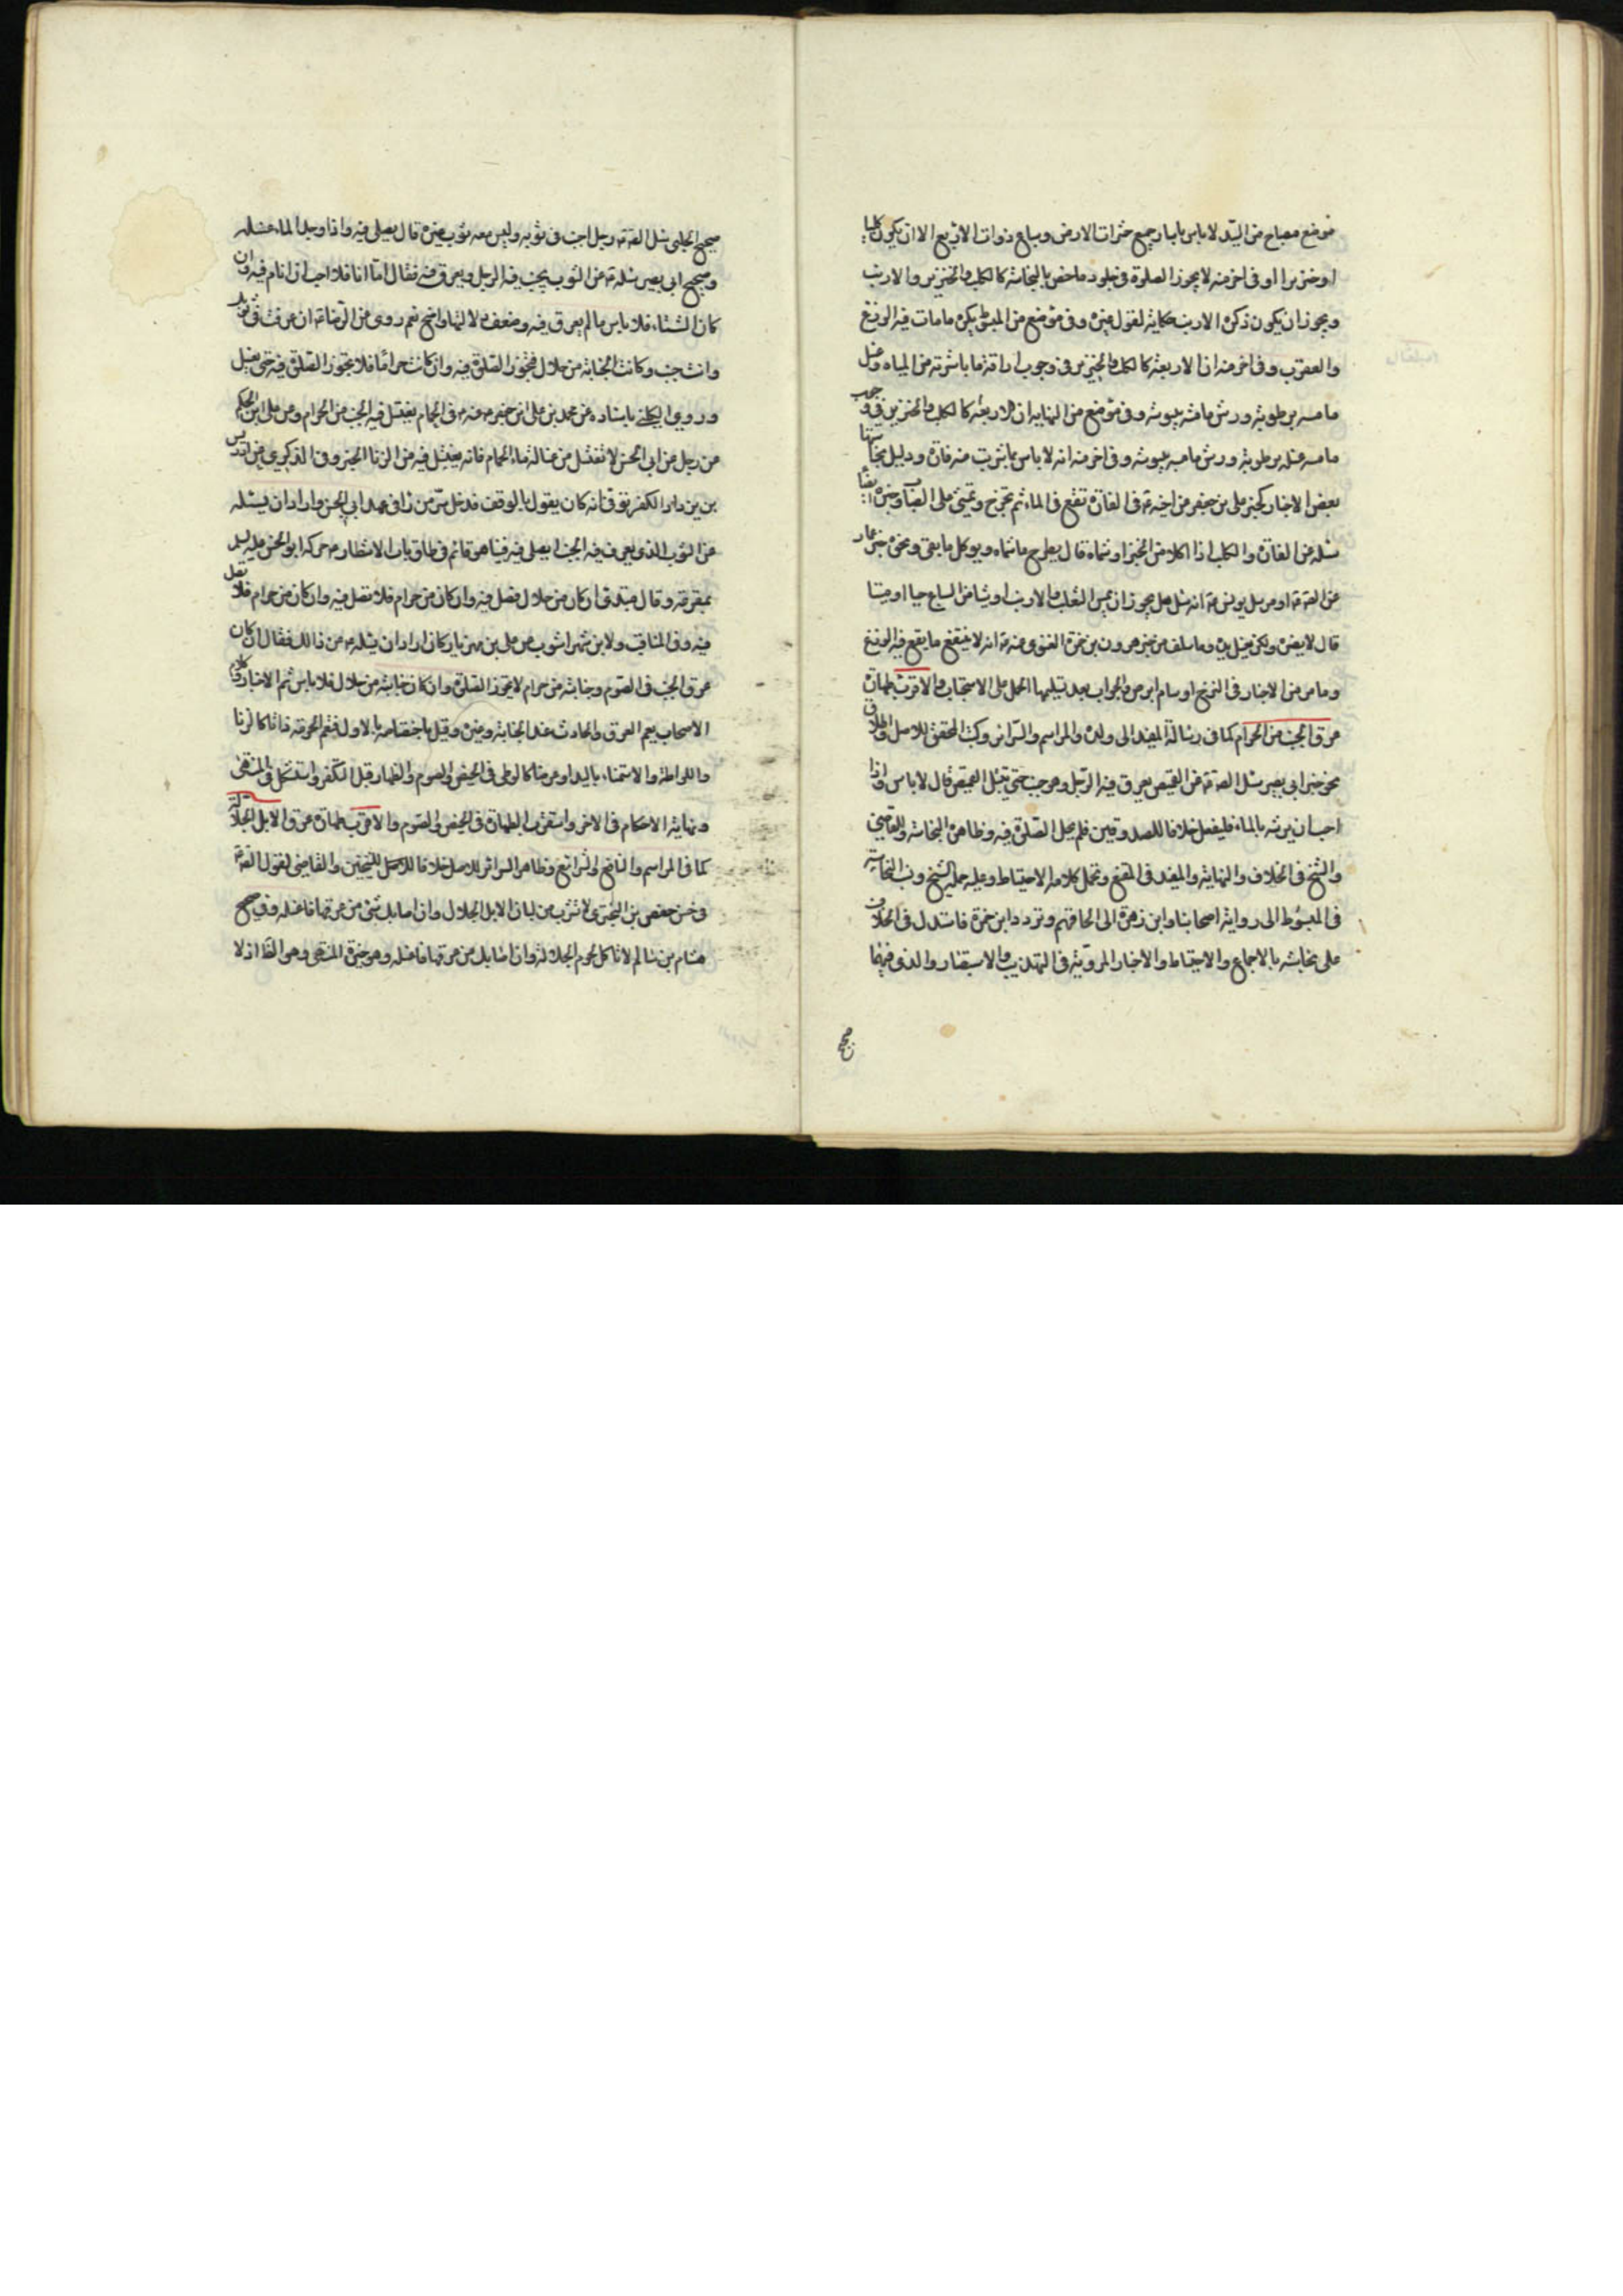 موضع مصباح من السيد لا باس باسار جميع حشرات الارض وسباع ذوات الاربع الا ان يكون كلبا
او خنزيرا او في اخر منه لا يجوز الصلوة في جلود ما خص بالنجاسة كالكلب والخنزير والارنب
ويجوز ان يكون ذكره الارنب حكاية لقول غيره وفي موضع من المبسوط يكره ما مات فيه الوزغ
والعقرب وفي اخر منه ان الاربعة كالكلب والخنزير في وجوب اراقة ما باشرته من المياه وغسل
ما مسه برطوبة ورش ما مسه بيبوسة وفي موضع من النهاية ان الاربعة كالكلب والخنزير في وجوب
ما مسه غسله برطوبة ورش ما مسه بيبوسة وفي اخر منه انه لا باس بما شربت منه فارة ودليل نجاستها
بعض الاخبار كخبر علي بن جعفر من اخيه ع في الفارة تقع في الماء ثم تخرج وتمشي على الثياب وخبره ايضا
سئله عن الفارة والكلب اذا اكلا من الخبز او شماه قال يطرح ما شماه ويوكل ما بقي ونحوه خبر عمار
عن الصادق ع ومرسل يونس عنه انه سئل هل يجوز ان يمس الثعلب والارنب او شيئا من السباع حيا او ميتا
قال لا يضره ولكن يغسل يده وما سلف من خبر هرون بن حمزة الغنوي عنه ع انه لا ينتفع ما يقع فيه الوزغ
وما مر من الاخبار في النزح او سام ابرص والجواب بعد تسليمها الحمل على الاستحباب والاقرب طهارة
عرق الجنب من الحرام كما في رسالة المفيد الى ولده والمراسم والسرائر وكتب المحقق للاصل واطلاق
نحو خبر ابي بصير سئل الصادق ع عن القميص يعرق فيه الرجل وهو جنب حتى يبتل القميص قال لا باس واذا
احب ان يرشه بالماء فليفعل خلافا للصدوقين فلم يحل الصلوة فيه وظاهره النجاسة وللقاضي
والشيخ في الخلاف والنهاية والمفيد في المقنع ويحمل كلامه الاحتياط وعليه حمله الشيخ ونسب النجاسة
في المبسوط الى رواية اصحابنا وابن زهرة الى الحاقهم وتردد ابن حمزة فاستدل في الخلاف
على نجاسته بالاجماع والاحتياط والاخبار المروية في التهذيب والاستبصار والذي فيهما
صحيح
صحيح الحلبي سئل الصادق ع رجل اجنب في ثوبه وليس معه ثوب غيره قال يصلي فيه واذا وجد الماء غسله
وصحيح ابي بصير سئله ع عن الثوب يجنب فيه الرجل ويعرق فيه فقال اما انا فلا احب ان انام فيه وان
كان الشتاء فلا باس ما لم يعرق فيه وضعف دلالتهما واضح نعم روي عن الرضا ع ان عرقت في ثوبك
وانت جنب وكانت الجنابة من حلال فتجوز الصلوة فيه وان كانت حراما فلا تجوز الصلوة فيه حتى يغسل
وروي الكليني باسناده عن محمد بن علي ابن جعفر عنه ع في الحمام يغتسل فيه الجنب من الحرام وعن علي ابن الحكم
عن رجل عن ابي الحسن لا تغتسل من غسالة ماء الحمام فانه يغتسل فيه من الزنا الخبر وفي الذكرى عن ادريس
بن يزداد الكفرتوثي انه كان يقول بالوقف فدخل سر من راى في عهد ابي الحسن واراد ان يسئله
عن الثوب الذي يعرق فيه الجنب ايصلي فيه فبينا هو قائم في طاق باب لانتظاره حركه ابو الحسن عليه السلم
بمقرعته وقال مبتدئا ان كان من حلال فصل فيه وان كان من حرام فلا تصل فيه وان كان من حرام فلا تصل
فيه وفي المناقب لابن شهراشوب عن علي بن مهزيار كان اراد ان يسئله ع عن ذلك فقال ان كان
عرق الجنب في الثوب وجنابته من حرام لا يجوز الصلوة وان كان جنابته من حلال فلا باس ثم الاخبار وكلام
الاصحاب يعم العرق والحادث عند الجنابة وغيره وقيل باختصاصه بالاول فنعم الحرمة ذاتا كالزنا
واللواطة والاستمناء باليد او عرضا كالوطي في الحيض والصوم والظهار قبل التكفير واستشكل في المنتهى
ونهاية الاحكام في الاخر واستقرب الطهارة في الحيض والصوم والاقرب طهارة عرق الابل الجلالة
كما في المراسم والنافع والشرائع وظاهر السرائر للاصل خلافا للشيخين والقاضي لقول الصادق ع
في حسن حفص بن البختري لا تشرب من البان الابل الجلالة وان اصابك شئ من عرقها فاغسله وفي صحيح
هشام بن سالم لا تاكل لحوم الجلالة وان اصابك من عرقها فاغسله وهو خيرة المنتهى وهو الظاهر اذ لا